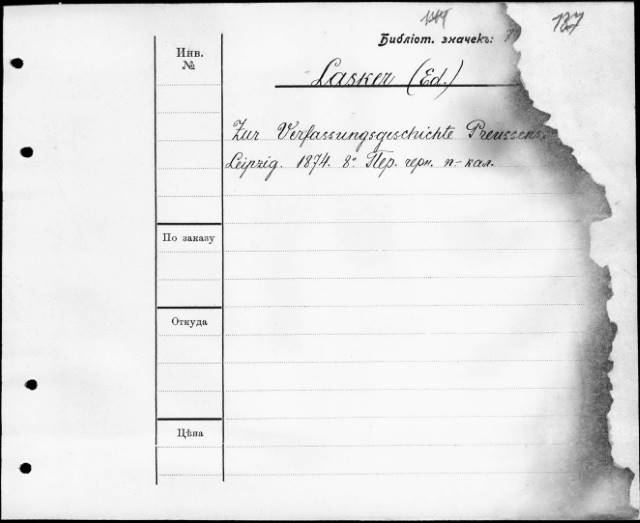 127
Библіот. значекъ:
Инв.
№
Lasker (Ed.)
Zur Verfassungsgeschichte Preussens.
Leipzig. 1874. 8º Пер. черн. п.-кал.
По заказу
Откуда
Цѣна